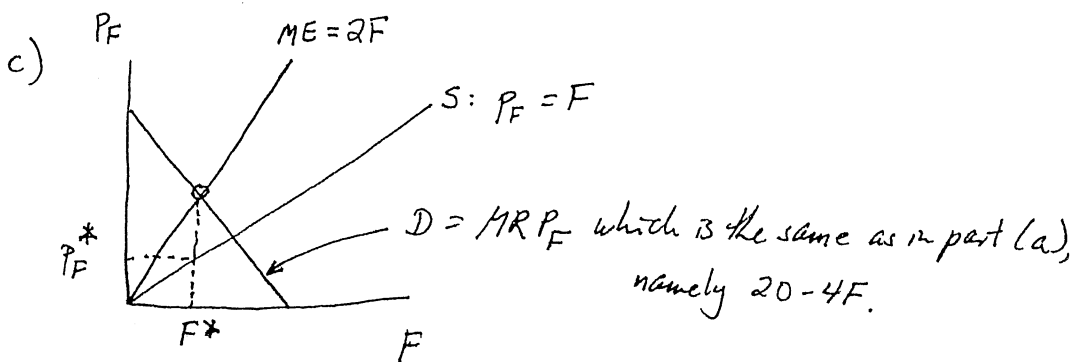 c)
P_F
ME = 2F
S: P_F = F
D = MRP_F which is the same as in part (a),
namely 20-4F.
P_F*
F*
F